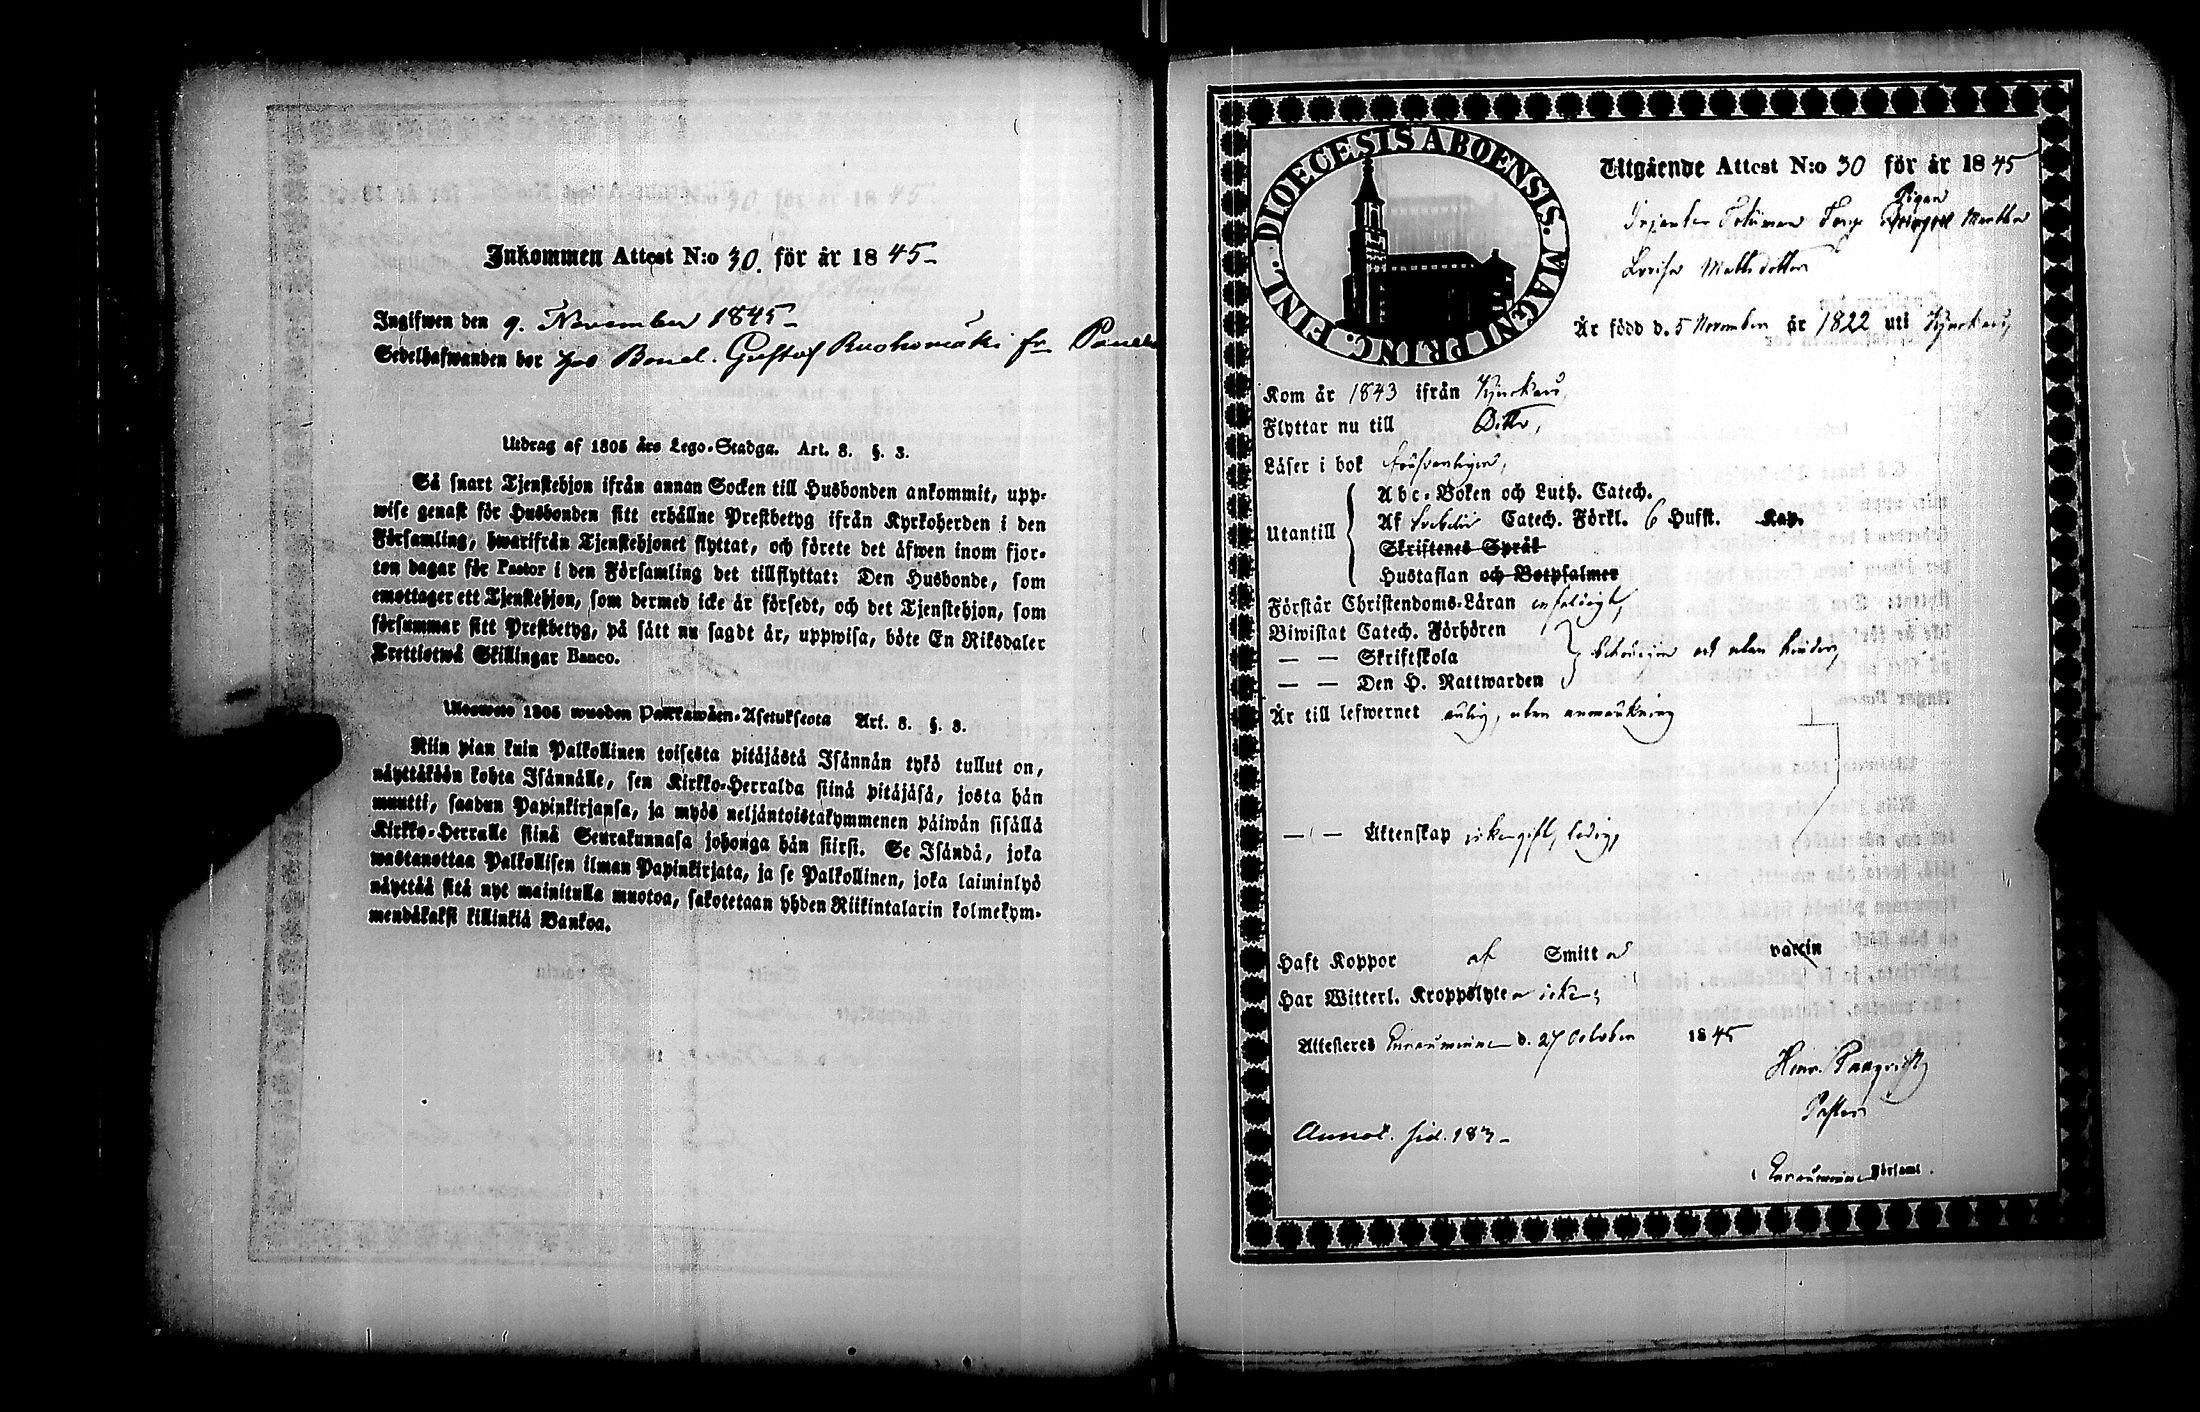 Inkommen Attest N:o 30. för år 1845-
Ingifwen den 9. November 1845-
Sedelhafwanden bor hos Bond. Gustaf Ruohomäki fr
Utdrag af 1805 års Lego-Stadga. Art. 8. §. 3.
Så snart Tjenstehjon ifrån annan Socken till Husbonden ankommit, upp-
wise genast för Husbonden sitt erhållne Prestbetyg ifrån Kyrkoherden i den
Församling, hwarifrån Tjenstehjonet flyttat, och förete det äfwen inom fjor-
ton dagar för Pastor i den Församling det tillflyttat: Den Husbonde, som
emottager ett Tjenstehjon, som dermed icke är försedt, och det Tjenstehjon, som
försummar sitt Prestbetyg, på sätt nu sagdt är, uppwisa, böte En Riksdaler
Trettiotwå Skillingar Banco.
Ulosweto 1805 wuoden Palkkawäen-Asetuksesta Art. 8. §. 3.
Niin pian kuin Palkollinen toisesta pitäjästä Isännän tykö tullut on,
näyttäköön kohta Isännälle, sen Kirkko-Herralda siinä pitäjäsä, josta hän
muutti, saadun Papinkirjansa, ja myös neljäntoistakymmenen päiwän sisällä
Kirkko-Herralle siinä Seurakunnasa johonga hän siirsi. Se Isändä, joka
wastanottaa Palkollisen ilman Papinkirjata, ja se Palkollinen, joka laiminlyö
näyttää sitä nyt mainitulla muotoa, sakotetaan yhden Riikintalarin kolmekym-
mendäkaksi killinkiä Bankoa.
DIOECESIS ABOENSIS. MAGNI PRINC. FINL.
Utgående Attest N:o 30 för år 1845
Pigan
Martha
Lovisa Mattsdotter
Är född d. 5 November år 1822 uti Kjurkais,
Kom år 1843 ifrån
Flyttar nu till Ditto,
Läser i bok försvarligen,
Utantill
Abc-Boken och Luth. Catech.
Af Svebelii Catech. Förkl. 6 Hufst. Kap.
Skriftenes Språk
Hustaflan och Botpsalmer
Förstår Christendoms-Läran enfaldigt,
Biwistat Catech. Förhören
— — Skriftskola
— — Den H. Nattwarden
behörigen och utan hinder,
Är till lefwernet ärlig, utan anmärkning
— — Äktenskap icke gift, ledig,
Haft Koppor af Smitto vaccin
Har Witterl. Kroppslyte icke;
Attesteras d. 27 October 1845
Henr.
Pastor
i Församl.
Annot. sid. 183-